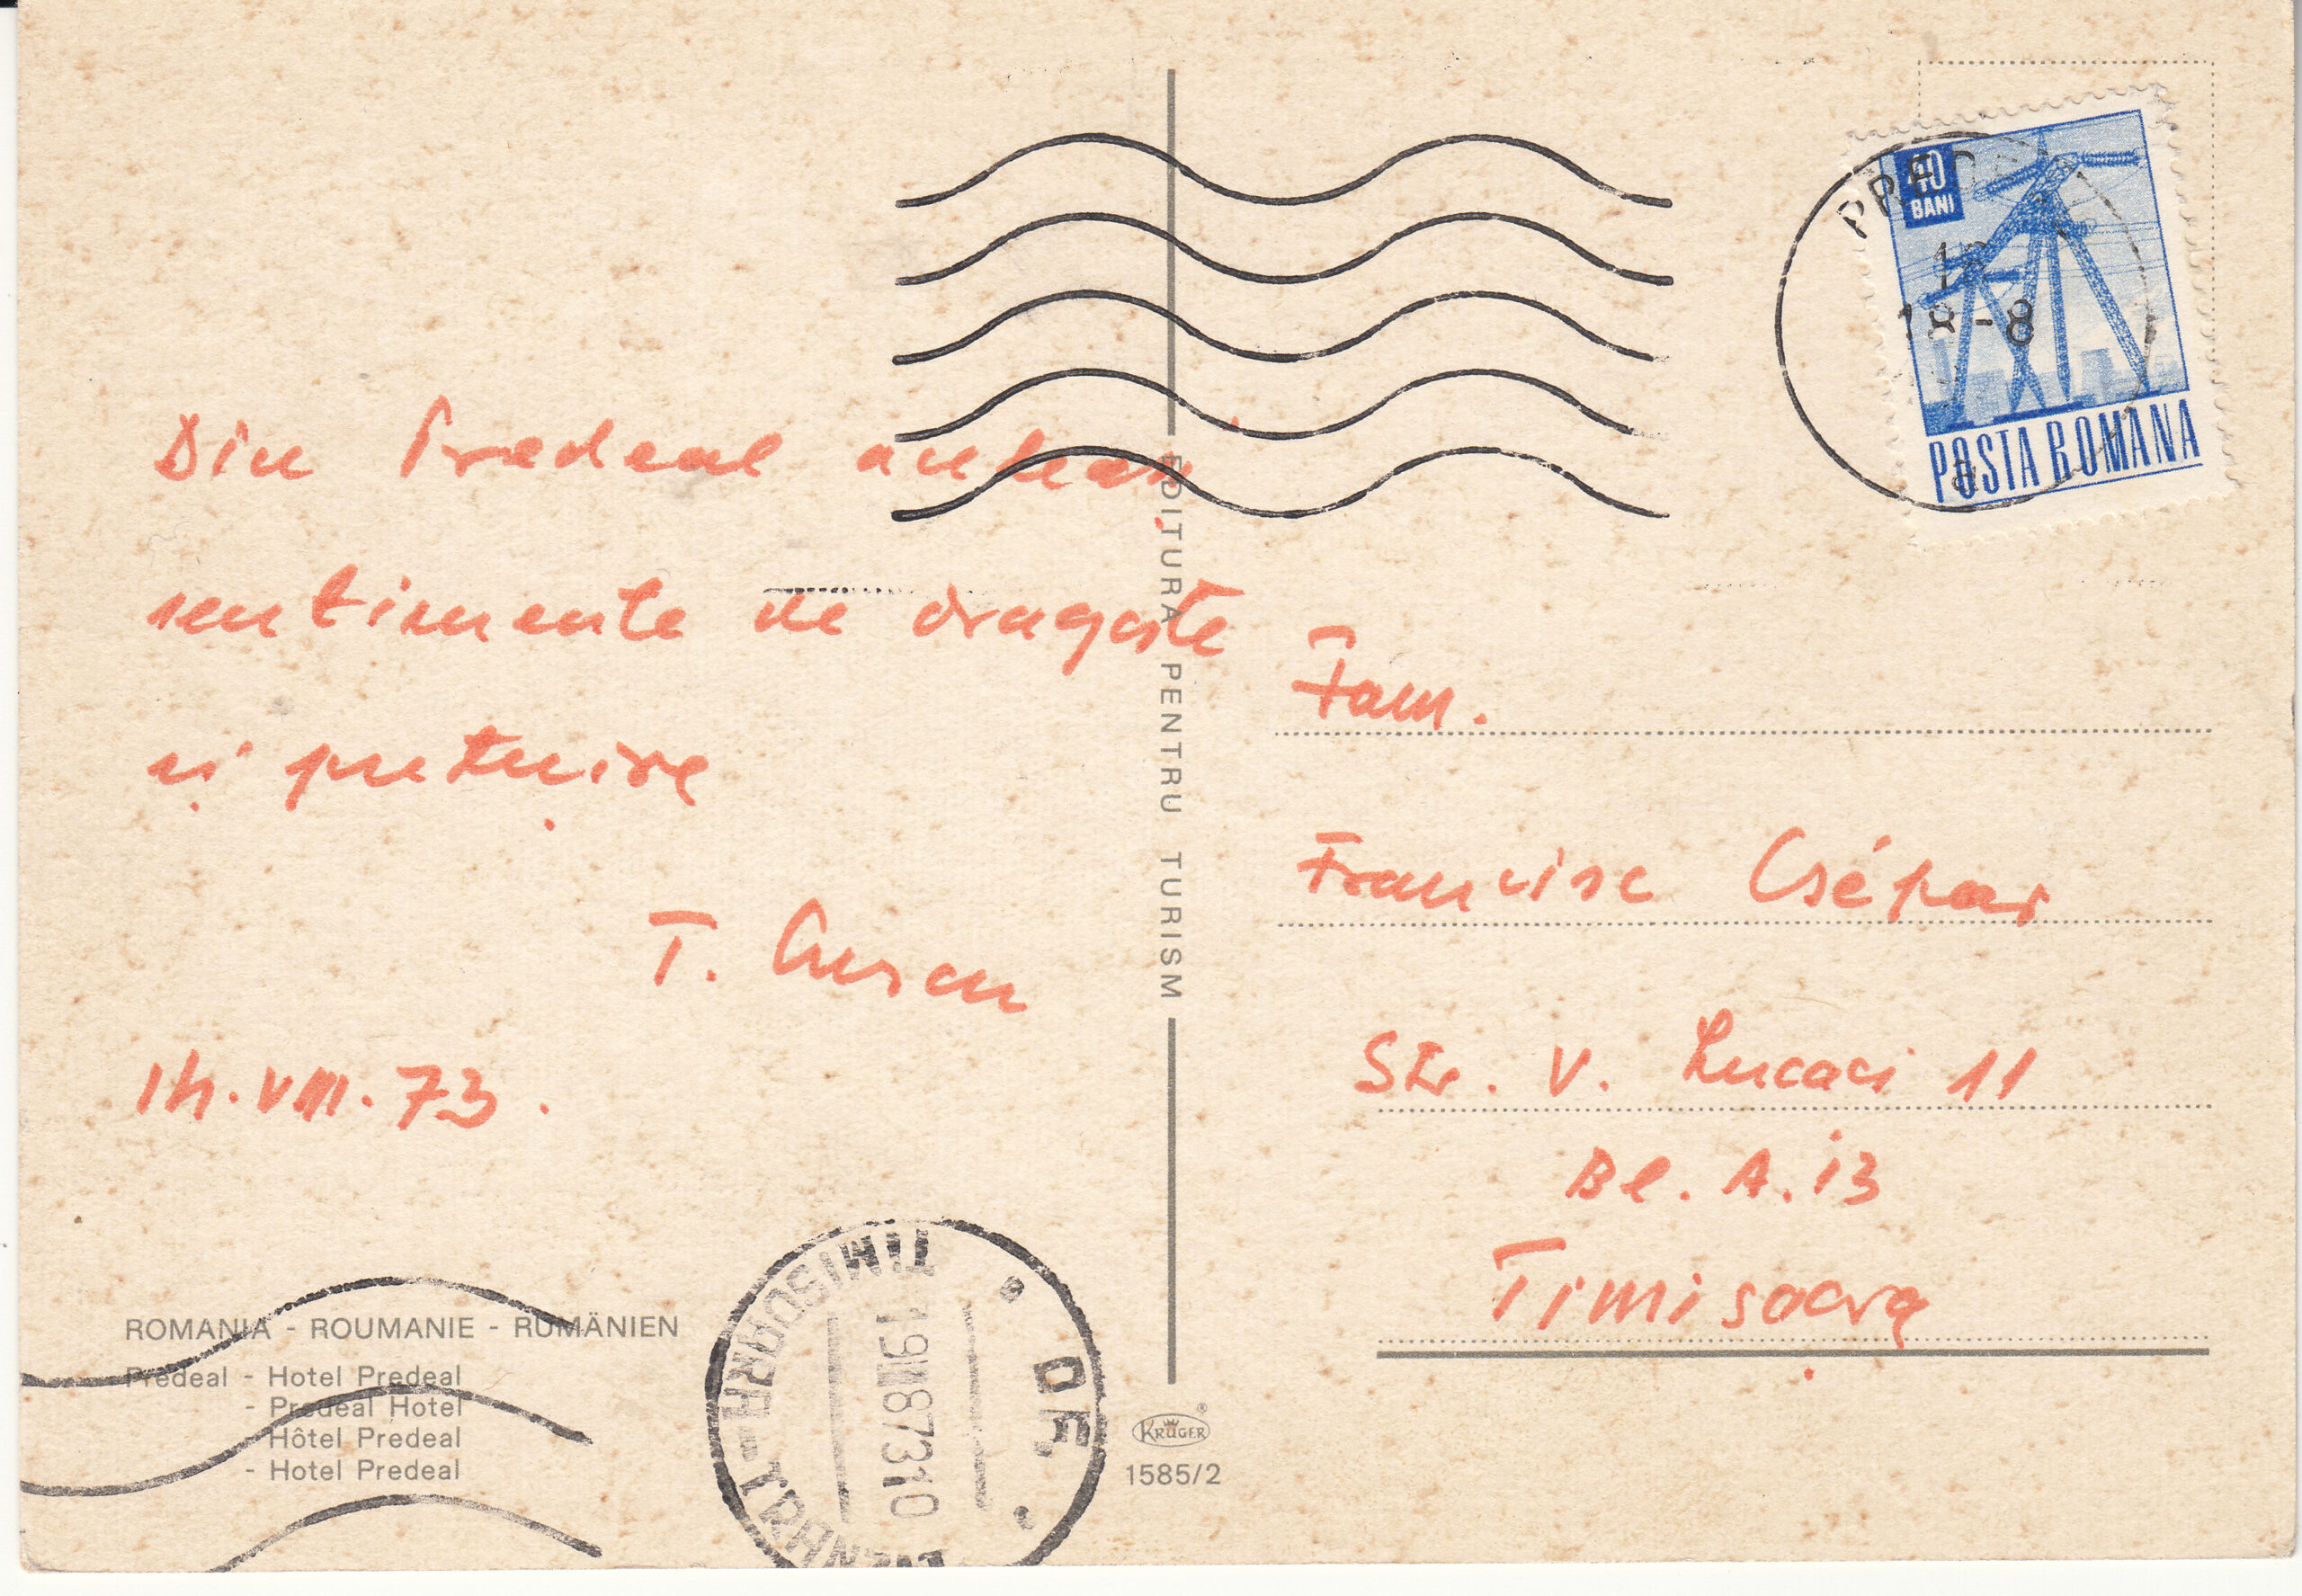 Din Predeal aceleași
sentimente de dragoste
și prețuire
T.
14.VIII.73.
ROMANIA - ROUMANIE - RUMÄNIEN
Predeal - Hotel Predeal
- Predeal Hotel
- Hôtel Predeal
- Hotel Predeal
EDITURA PENTRU TURISM
KRÜGER
1585/2
TIMISOARA-TRANZIT
19 873 10
OF.
40
BANI
POSTA ROMANA
PREDEAL
18-8
Fam.
Francisc Csépar
Str. V. Lucaci 11
Bl. A.13
Timișoara